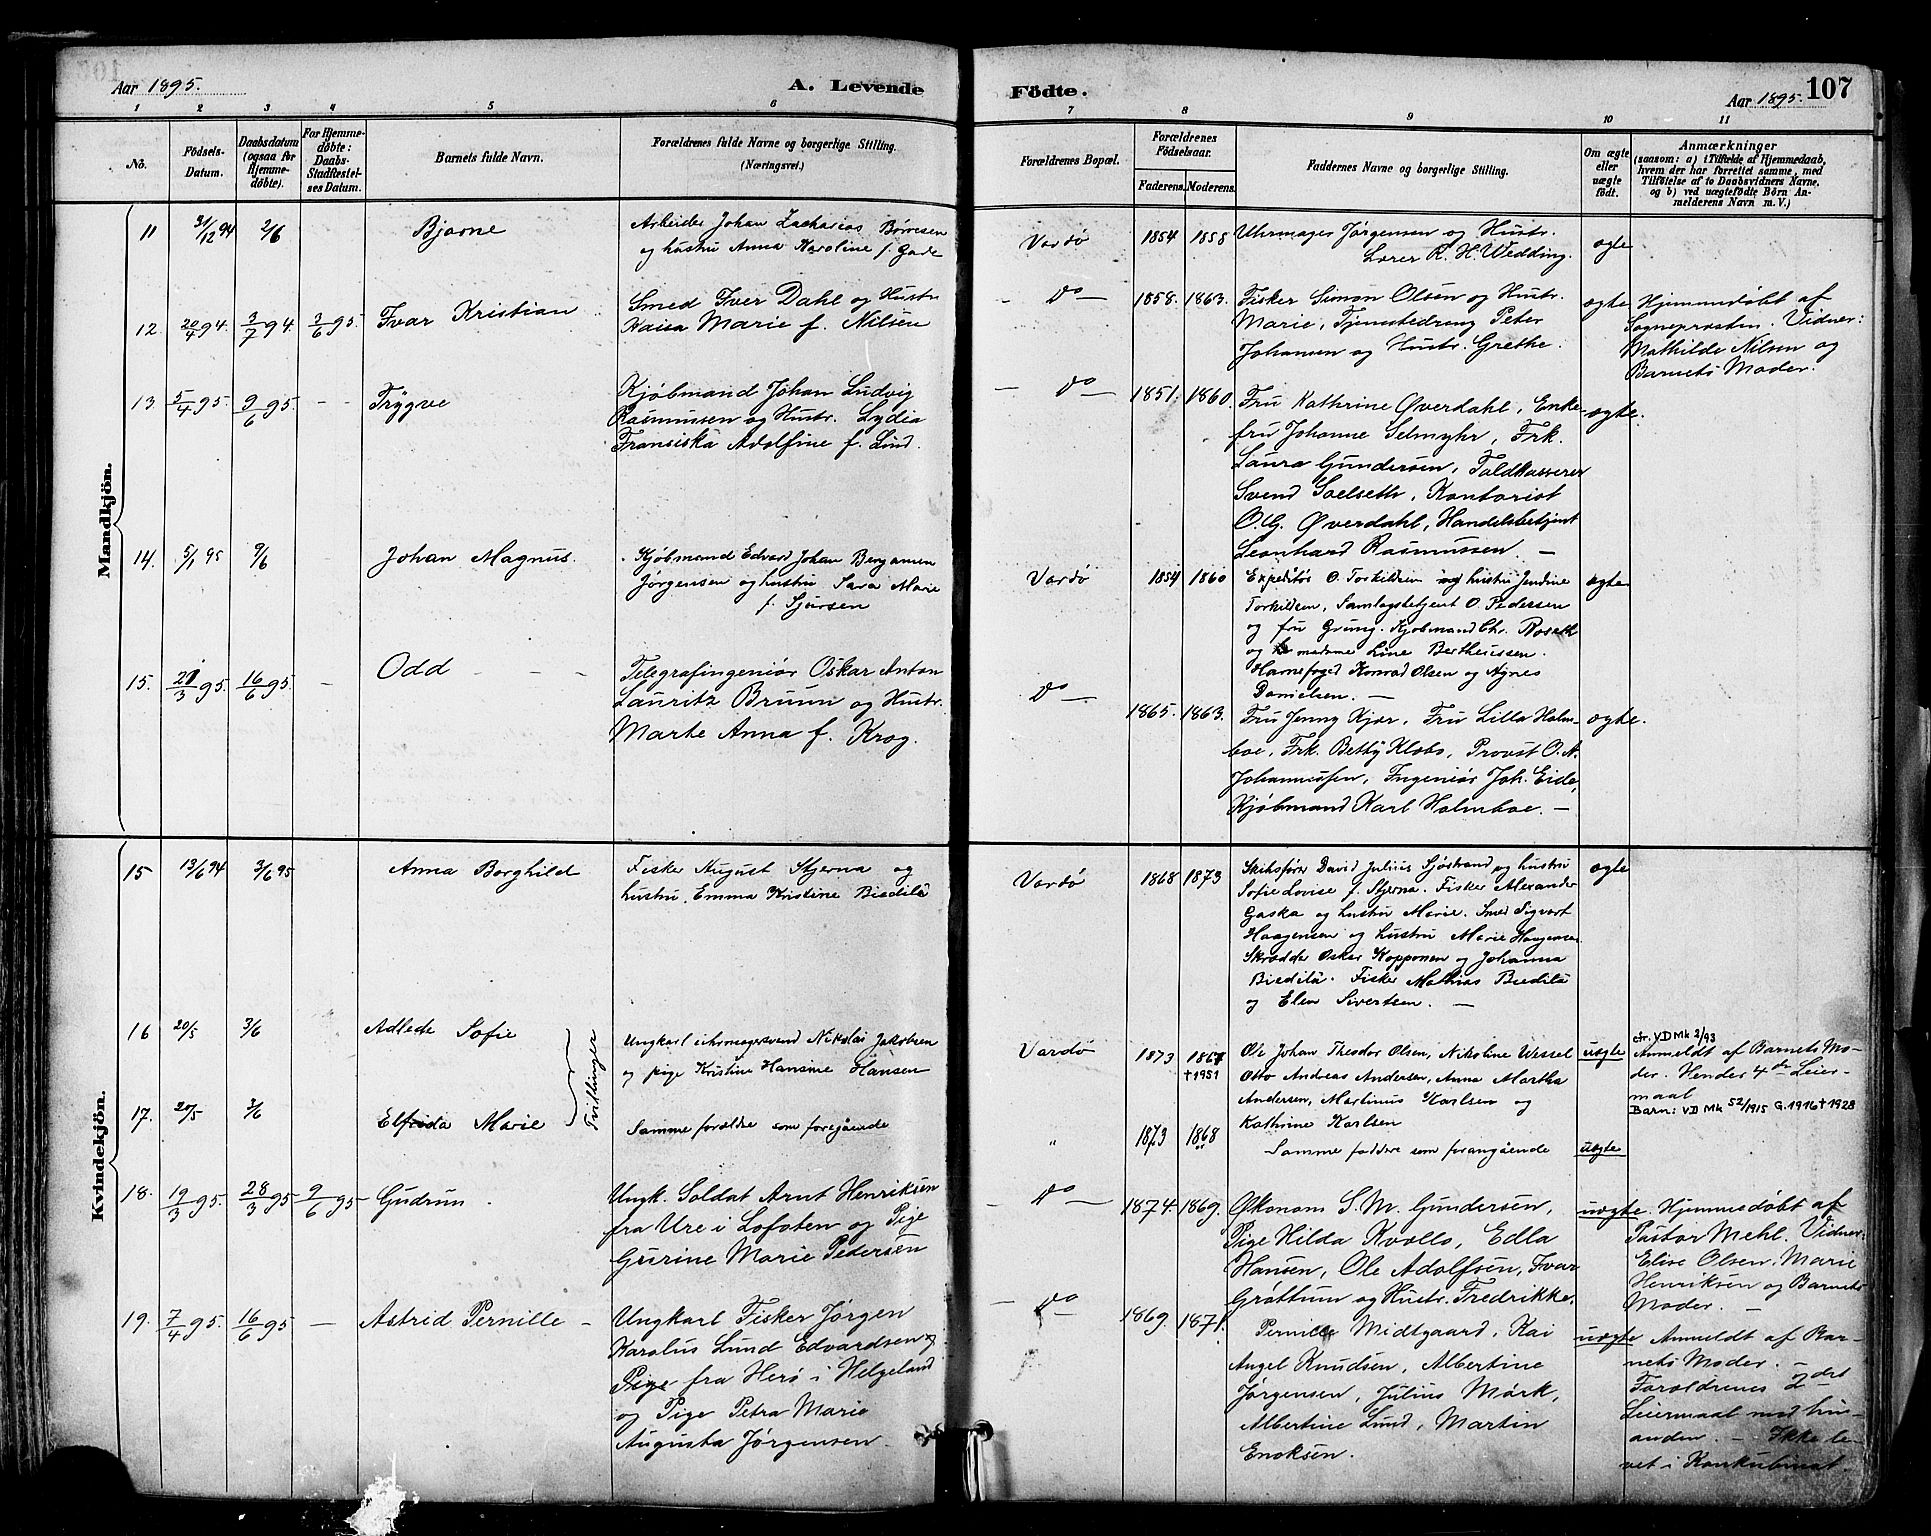 Aar 1895.
A. Levende Födte.
Aar 1895. 107
1 2 3 4 5 6 7 8 9 10 11
No.
Födsels-Datum.
Daabsdatum (ogsaa for Hjemmedöbte).
For Hjemmedöbte: Daabs-Stadfæstelses Datum.
Barnets fulde Navn.
Forældrenes fulde Navne og borgerlige Stilling.
(Næringsvei.)
Forældrenes Bopæl.
Forældrenes Födselsaar.
Faderens. Moderens.
Faddernes Navne og borgerlige Stilling.
Om ægte eller uægte födt.
Anmærkninger
(saasom: a) i Tilfælde af Hjemmedaab,
hvem der har forrettet samme, med
Tilföielse af to Daabsvidners Navne,
og b) ved uægtefödte Börn An-
melderens Navn m. V.)
Mandkjön.
11 31/12 94 2/6 Bjarne
Arbeider Johan Zacharias Børresen
og hustru Anna Karoline f. Gade
Vardø 1854 1858
Uhrmager Jørgensen og Hustr.
Lærer R. H. Wedding.
ægte
12. 20/4 94. 3/7 94. 3/6 95. Ivar Kristian
Smed Iver Dahl og Hustr.
Kaisa Marie f. Nilsen
— Do — 1858. 1863.
Fisker Simon Olsen og Hustr.
Marie, Tjenestedreng Peter
Johansen og Hustr. Grethe.
ægte
Hjemmedøbt af
Sognepræsten. Vidner:
Mathilde Nilsen og
Barnets Moder.
13. 5/4 95. 9/6 95. — Trygve
Kjøbmand Johan Ludvig
Rasmussen og Hustr. Lydia
Fransiska Adolfine f. Lind.
— Do — 1851. 1860.
Fru Kathrine Øverdahl, Enke-
fru Johanne Selmyhr, Frk.
Laura Gundersen, Toldkasserer
Svend Soelseth, Kontorist
O. G. Øverdahl, Handelsbetjent
Leonhard Rasmussen. —
ægte.
14. 5/1 95 9/6 Johan Magnus.
Kjøbmand Edvard Johan Benjamen
Jørgensen og hustru Sara Marie
f. Sjursen
Vardø 1854 1860
Expeditør O. Torkildsen og hustru Jendine
Torkildsen, Samlagsbetjent O. Pedersen
og fru Grung. Kjøbmand Chr. Roseth
og madame Line Bertheussen.
Havnefoged Konrad Olsen og Agnes
Danielsen. —
ægte
15. 21/3 95. 16/6 95. — Odd — —
Telegrafingeniør Oskar Anton
Lauritz Bruun og Hustr.
Marte Anna f. Krog.
Do — 1865. 1863.
Fru Jenny Kjær, Fru Lilla Holm-
boe, Frk. Betty Klæbo, Provst O. A.
Johannessen, Ingeniør Joh. Eide,
Kjøbmand Karl Holmboe. —
ægte.
Kvindekjön.
15 13/6 94 3/6 95 Anna Borghild
Fisker August Stjerna og
hustru Emma Kristine Biedilä
Vardø 1868 1873
Skibsfører David Julius Sjöstrand og hustru
Sofie Lovise f. Stjerna. Fisker Alexander
Gaska og hustru Marie. Smed Sigvart
Haagensen og hustru Marie Haagensen
Skrædder Oskar Kopponen og Johanna
Biedilä. Fisker Mathias Biedilä
og Elen Sivertsen. —
ægte
16 20/5 3/6 Adlede Sofie
Tvillinger
Ungkarl uhrmagersvend Nikolai Jakobsen
og pige Kristine Hansine Hansen
Vardø 1873 1867
†1951
Ole Johan Theodor Olsen, Nikoline Wessel
Otto Andreas Andersen, Anna Martha
Andersen, Martinus Karlsen og
Kathrine Karlsen
uægte
ctr. VD Mk 2/93
Anmeldt af Barnets Mo-
der. Hendes 4de Leier-
maal
Barn: VD Mk 52/1915 G. 1916 † 1928
17. 20/5 3/6 Elfrida Marie
Samme forældre som foregående
" 1873 1868
Samme faddere som forangående
uægte
18. 19/3 95. 28/3 95 9/6 95 Gudrun.
Ungk. Soldat Arnt Henriksen
fra Ure i Lofoten og Pige
Gurine Marie Pedersen
Do — 1874. 1869.
Økonom S. M. Gundersen,
Pige Hilda Kvollo, Edla
Hansen, Ole Adolfsen, Ivar
Grøttum og Hustr. Fredrikke.
uægte.
Hjemmedøbt af
Pastor Mehl. Vidner:
Elise Olsen. Marie
Henriksen og Barnets
Moder. —
19. 7/4 95. 16/6 95 — Astrid Pernille —
Ungkarl Fisker Jørgen
Karolus Lund Edvardsen og
Pige fra Herø i Helgeland
og Pige Petra Marie
Augusta Jørgensen.
— Do — 1869. 1871.
Pernille Midtgaard, Kai
Angel Knudsen, Albertine
Jørgensen, Julius Mørk,
Albertine Lund, Martin
Enoksen.
uægte
Anmeldt af Bar-
nets Moder. —
Forældrenes 2det
Leiermaal med hin-
anden. — Ikke le-
vet i Konkubinat.